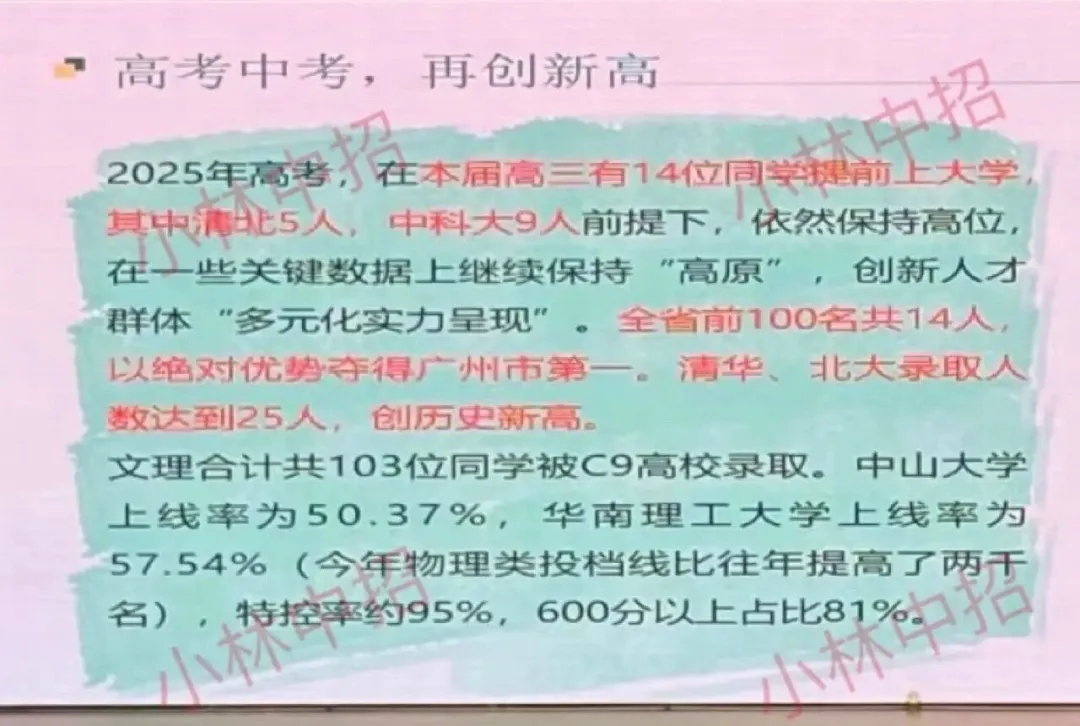 高考中考，再创新高
2025年高考，在本届高三有14位同学提前上大学，
其中清北5人，中科大9人前提下，依然保持高位，
在一些关键数据上继续保持“高原”，创新人才
群体“多元化实力呈现”。全省前100名共14人，
以绝对优势夺得广州市第一。清华、北大录取人
数达到25人，创历史新高。
文理合计共103位同学被C9高校录取。中山大学
上线率为50.37%，华南理工大学上线率为
57.54%（今年物理类投档线比往年提高了两千
名），特控率约95%，600分以上占比81%。
小林中招
小林中招
小林中招
小林中招